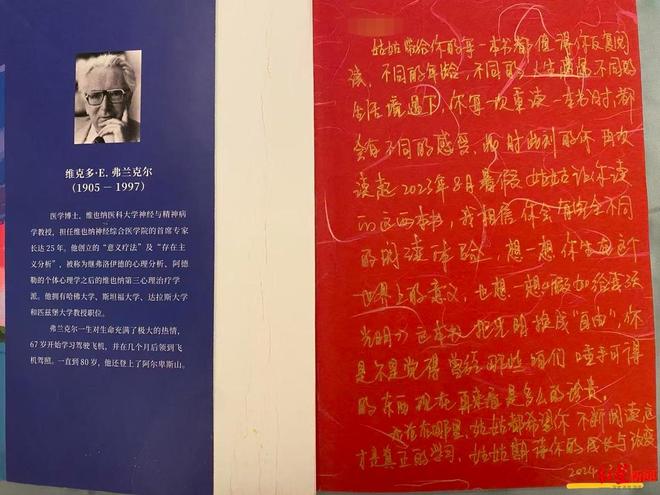 维克多·E. 弗兰克尔
(1905 — 1997)
医学博士，维也纳医科大学神经与精神病
学教授，担任维也纳神经综合医学院的首席专家
长达 25 年。他创立的“意义疗法”及“存在主
义分析”，被称为继弗洛伊德的心理分析、阿德勒
的个体心理学之后的维也纳第三心理治疗学
派。他拥有哈佛大学、斯坦福大学、达拉斯大学
和匹兹堡大学教授职位。
弗兰克尔一生对生命充满了极大的热情，
67 岁开始学习驾驶飞机，并在几个月后领到飞
机驾照。一直到 80 岁，他还登上了阿尔卑斯山。
姑姑带给你的每一本书都值得你反复阅
读，不同的年龄，不同的人生阶段不同的
生活境遇下，你每一次重读一本书时，都
会有不同的感受，此时此刻的你再次
读起2023年8月暑假姑姑让你读
的这四本书，我相信你会有完全不同
的阅读体验，想一想你生在这个
世界上的意义，也想一想《假如给我三天
光明》这本书，把光明换成“自由”，你
是不是觉得曾经那些咱们唾手可得
的东西现在再来看是多么的珍贵。
无论在哪里，姑姑都希望你不断阅读，这
才是真正的学习，姑姑期待你的成长与
2024